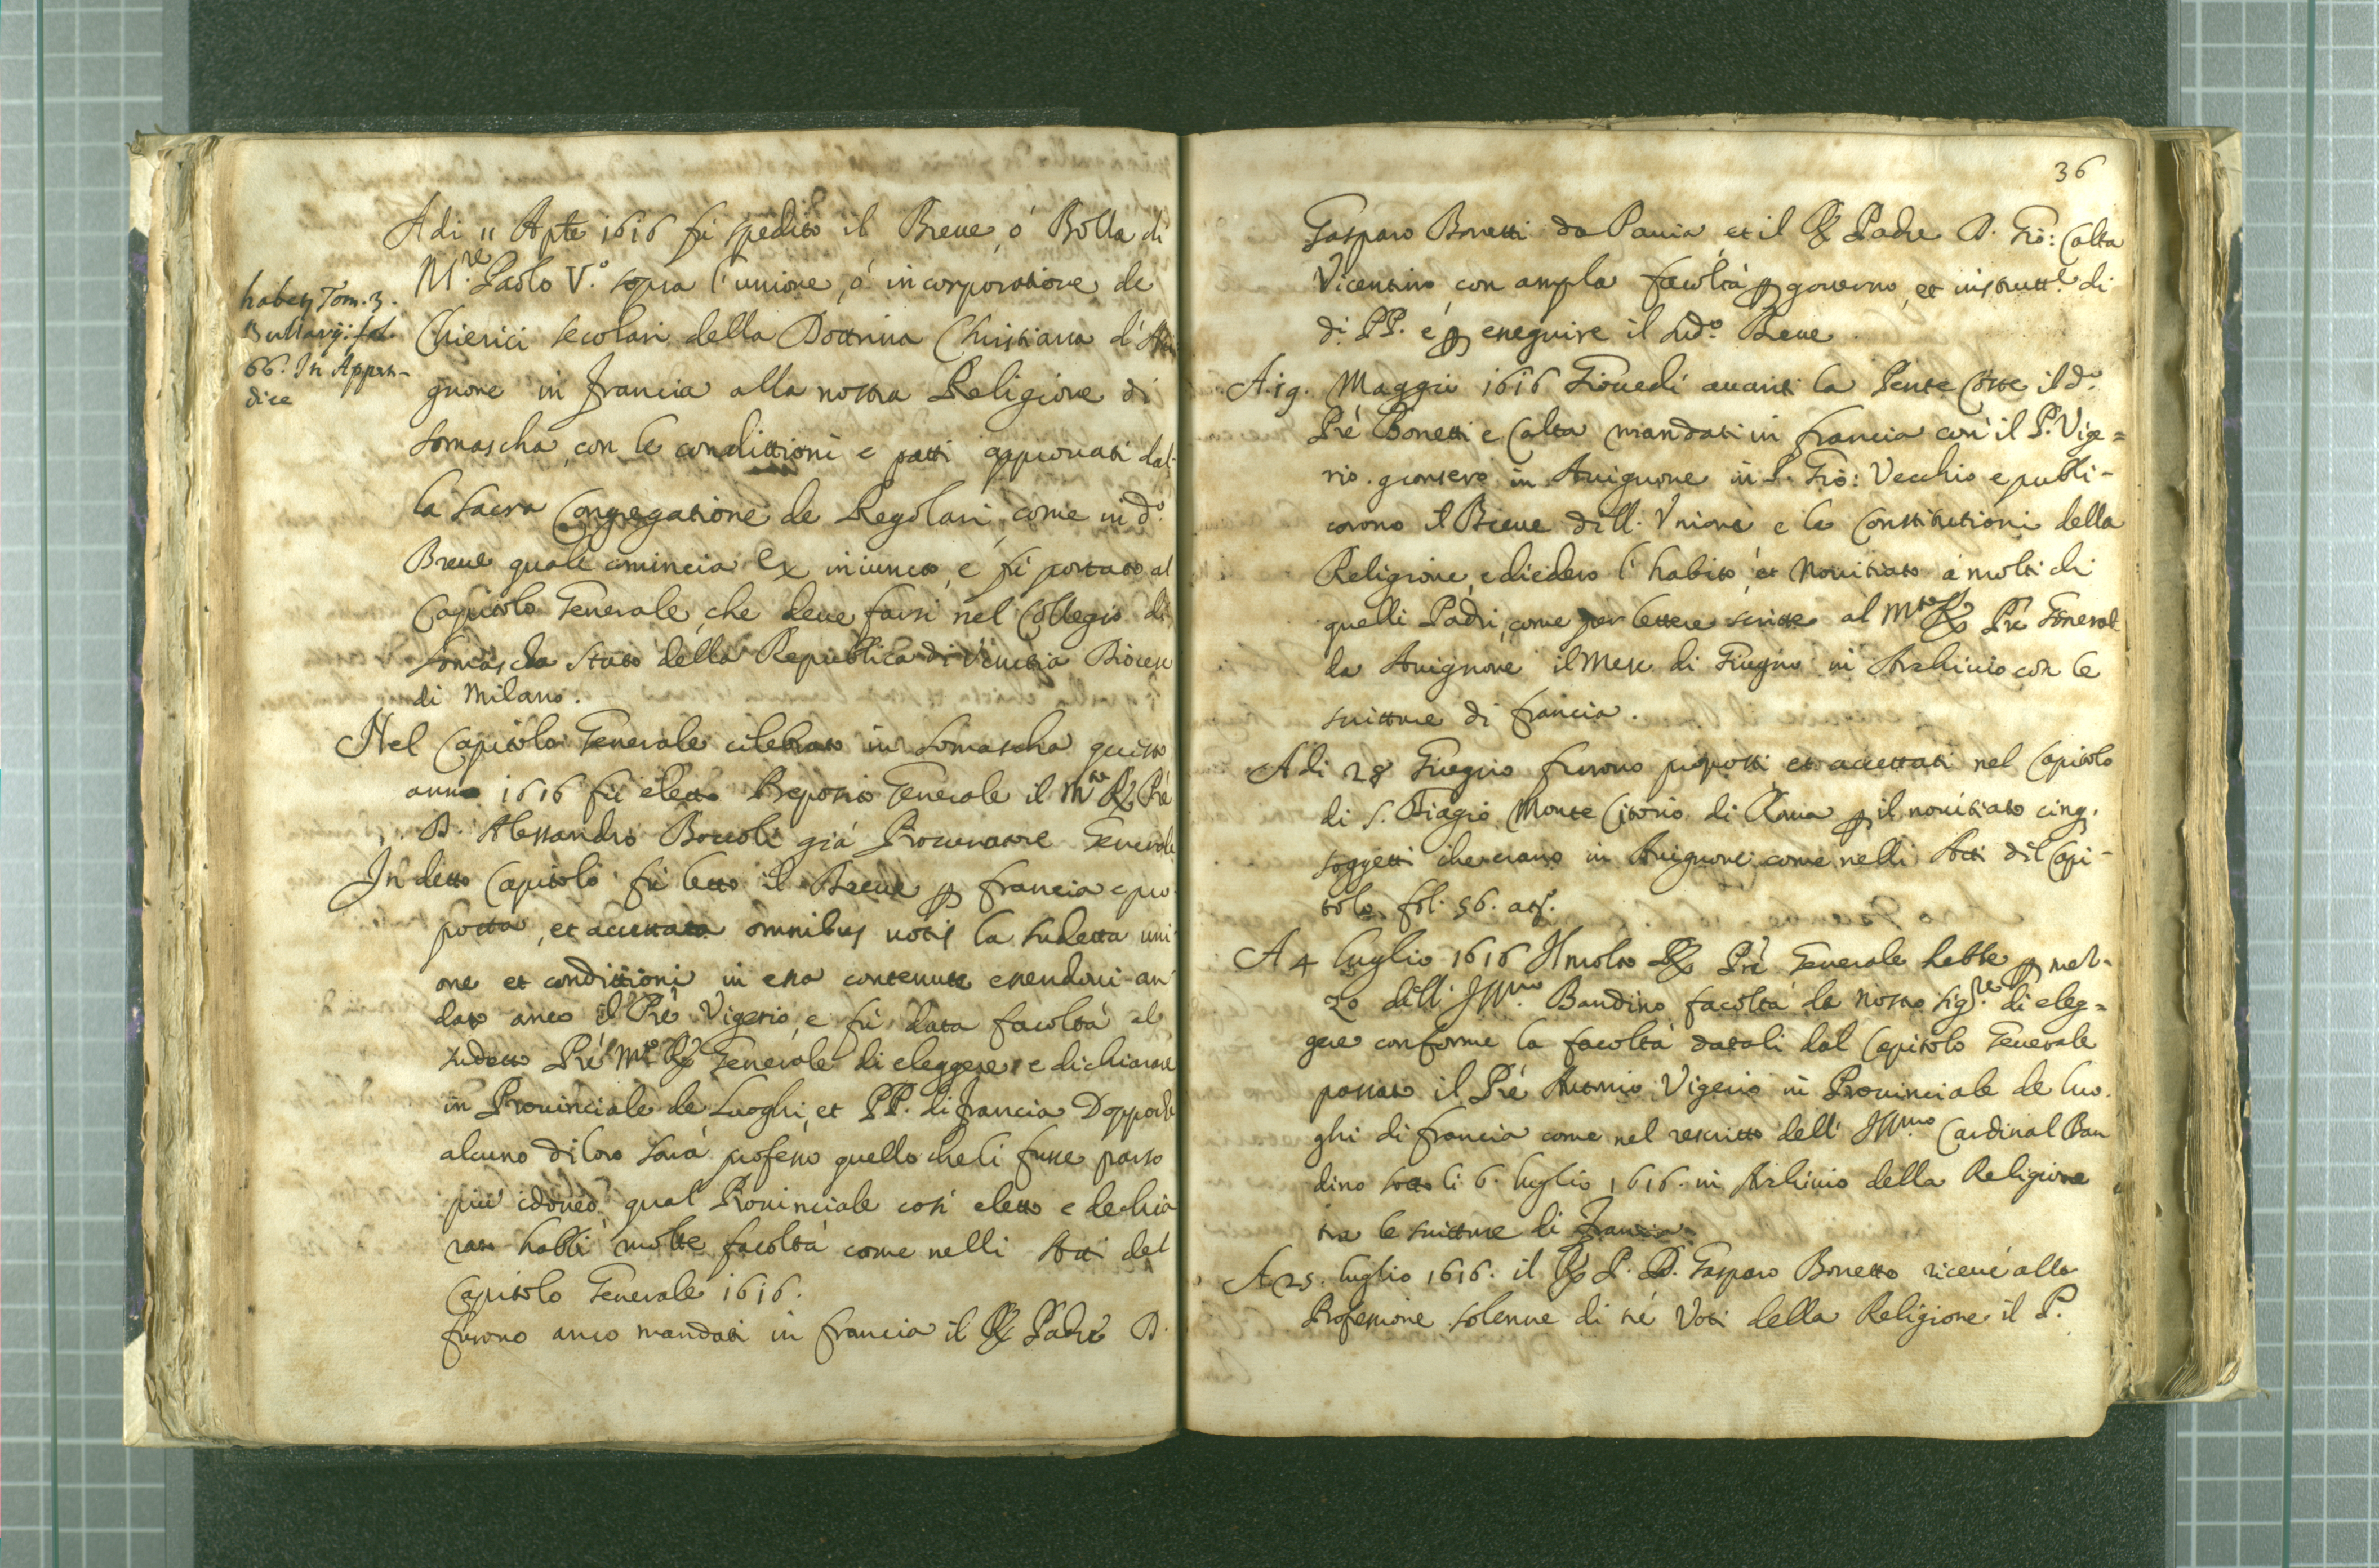 Adi 11 Aple 1616 fù spedito il Breue, ò Bolla di
N.re Paolo V.o sopra l'unione, ò incorporatione de
Chierici secolari della Dottrina Christiana d'Aui
gnone in Francia alla nostra Religione di
Somascha, con le condittioni e patti approuati dal-
la Sacra Congregatione de Regolari, come in d.o
Breue quale comincia Ex iniuncto, e fù portato al
Capitolo Generale, che deue farsi nel Collegio di
Somascha Stato della Republica di Venetia Dioces
di Milano.
habet Tom. 3.
Bullarij. fol.
66. In Appen-
dice
Nel Capitolo Generale celebrato in Somascha questo
anno 1616 fù eletto Preposito Generale il M.to R. Prê
D. Alessandro Boccoli già Procuratore Generale
In detto Capitolo fù letto il Breue p Francia e pro
posta, et accettata omnibus uotis la sudetta uni
one et condittioni in essa contenute essendoui an
dato anco il Prê Vigerio, e fù data facoltà al
sudetto Prê M.to R. Generale di eleggere e dichiarare
in Prouinciale de Luoghi, et PP. di Francia Doppo che
alcuno di loro sarà professo quello che li fusse parso
più idoneo qual Prouinciale così eletto e dechia
rato habbi molte facoltà come nelli Atti del
Capitolo Generale 1616.
furono anco mandati in Francia il R. Padre D.
36
Gasparo Bonetti da Pauia, et il R. Padre D. Gio: Calta
Vicentino con ampla facoltà p gouerno, et instrutt.e di
di PP. e p esseguire il sud.o Breue
A 19. Maggio 1616 Giouedi auanti la Pente Coste il d.o
Prê Bonetti e Calta mandati in Francia con il P. Vige=
rio. gionsero in Auignone in S. Gio: Vecchio e publi-
corono il Breue dell. Vnione e le Constitutioni della
Religione, e diedero l'habito, et Nouitiato à molti di
quelli Padri, come per lettere scritte al M.to R. Prê Generale
da Auignone il Mese di Giugno in Archiuio con le
scritture di Francia.
Adi 28 Giugno furono proposti et accettati nel Capitolo
di S. Biagio Monte Citorio di Roma p il nouitiato cinq.
soggetti che erano in Auignone, come nelli Atti del Capi-
tolo fol. 56. at.o
A 4 luglio 1616 Il molto R. Prê Generale hebbe p mez-
zo dell' Ill.mo Bandino facoltà da Nostro Sig.re di eleg=
gere conforme la facoltà datali dal Capitolo Generale
passato il Prê Antonio Vigerio in Prouinciale de luo
ghi di Francia come nel rescritto dell' Ill.mo Cardinal Ban
dino sotto li 6. luglio 1616. in Archiuio della Religione
tra le scritture di Francia.
A 25. luglio 1616. il R. P. D. Gasparo Bonetto riceuè alla
Professione solenne di tre Voti della Religione il P.